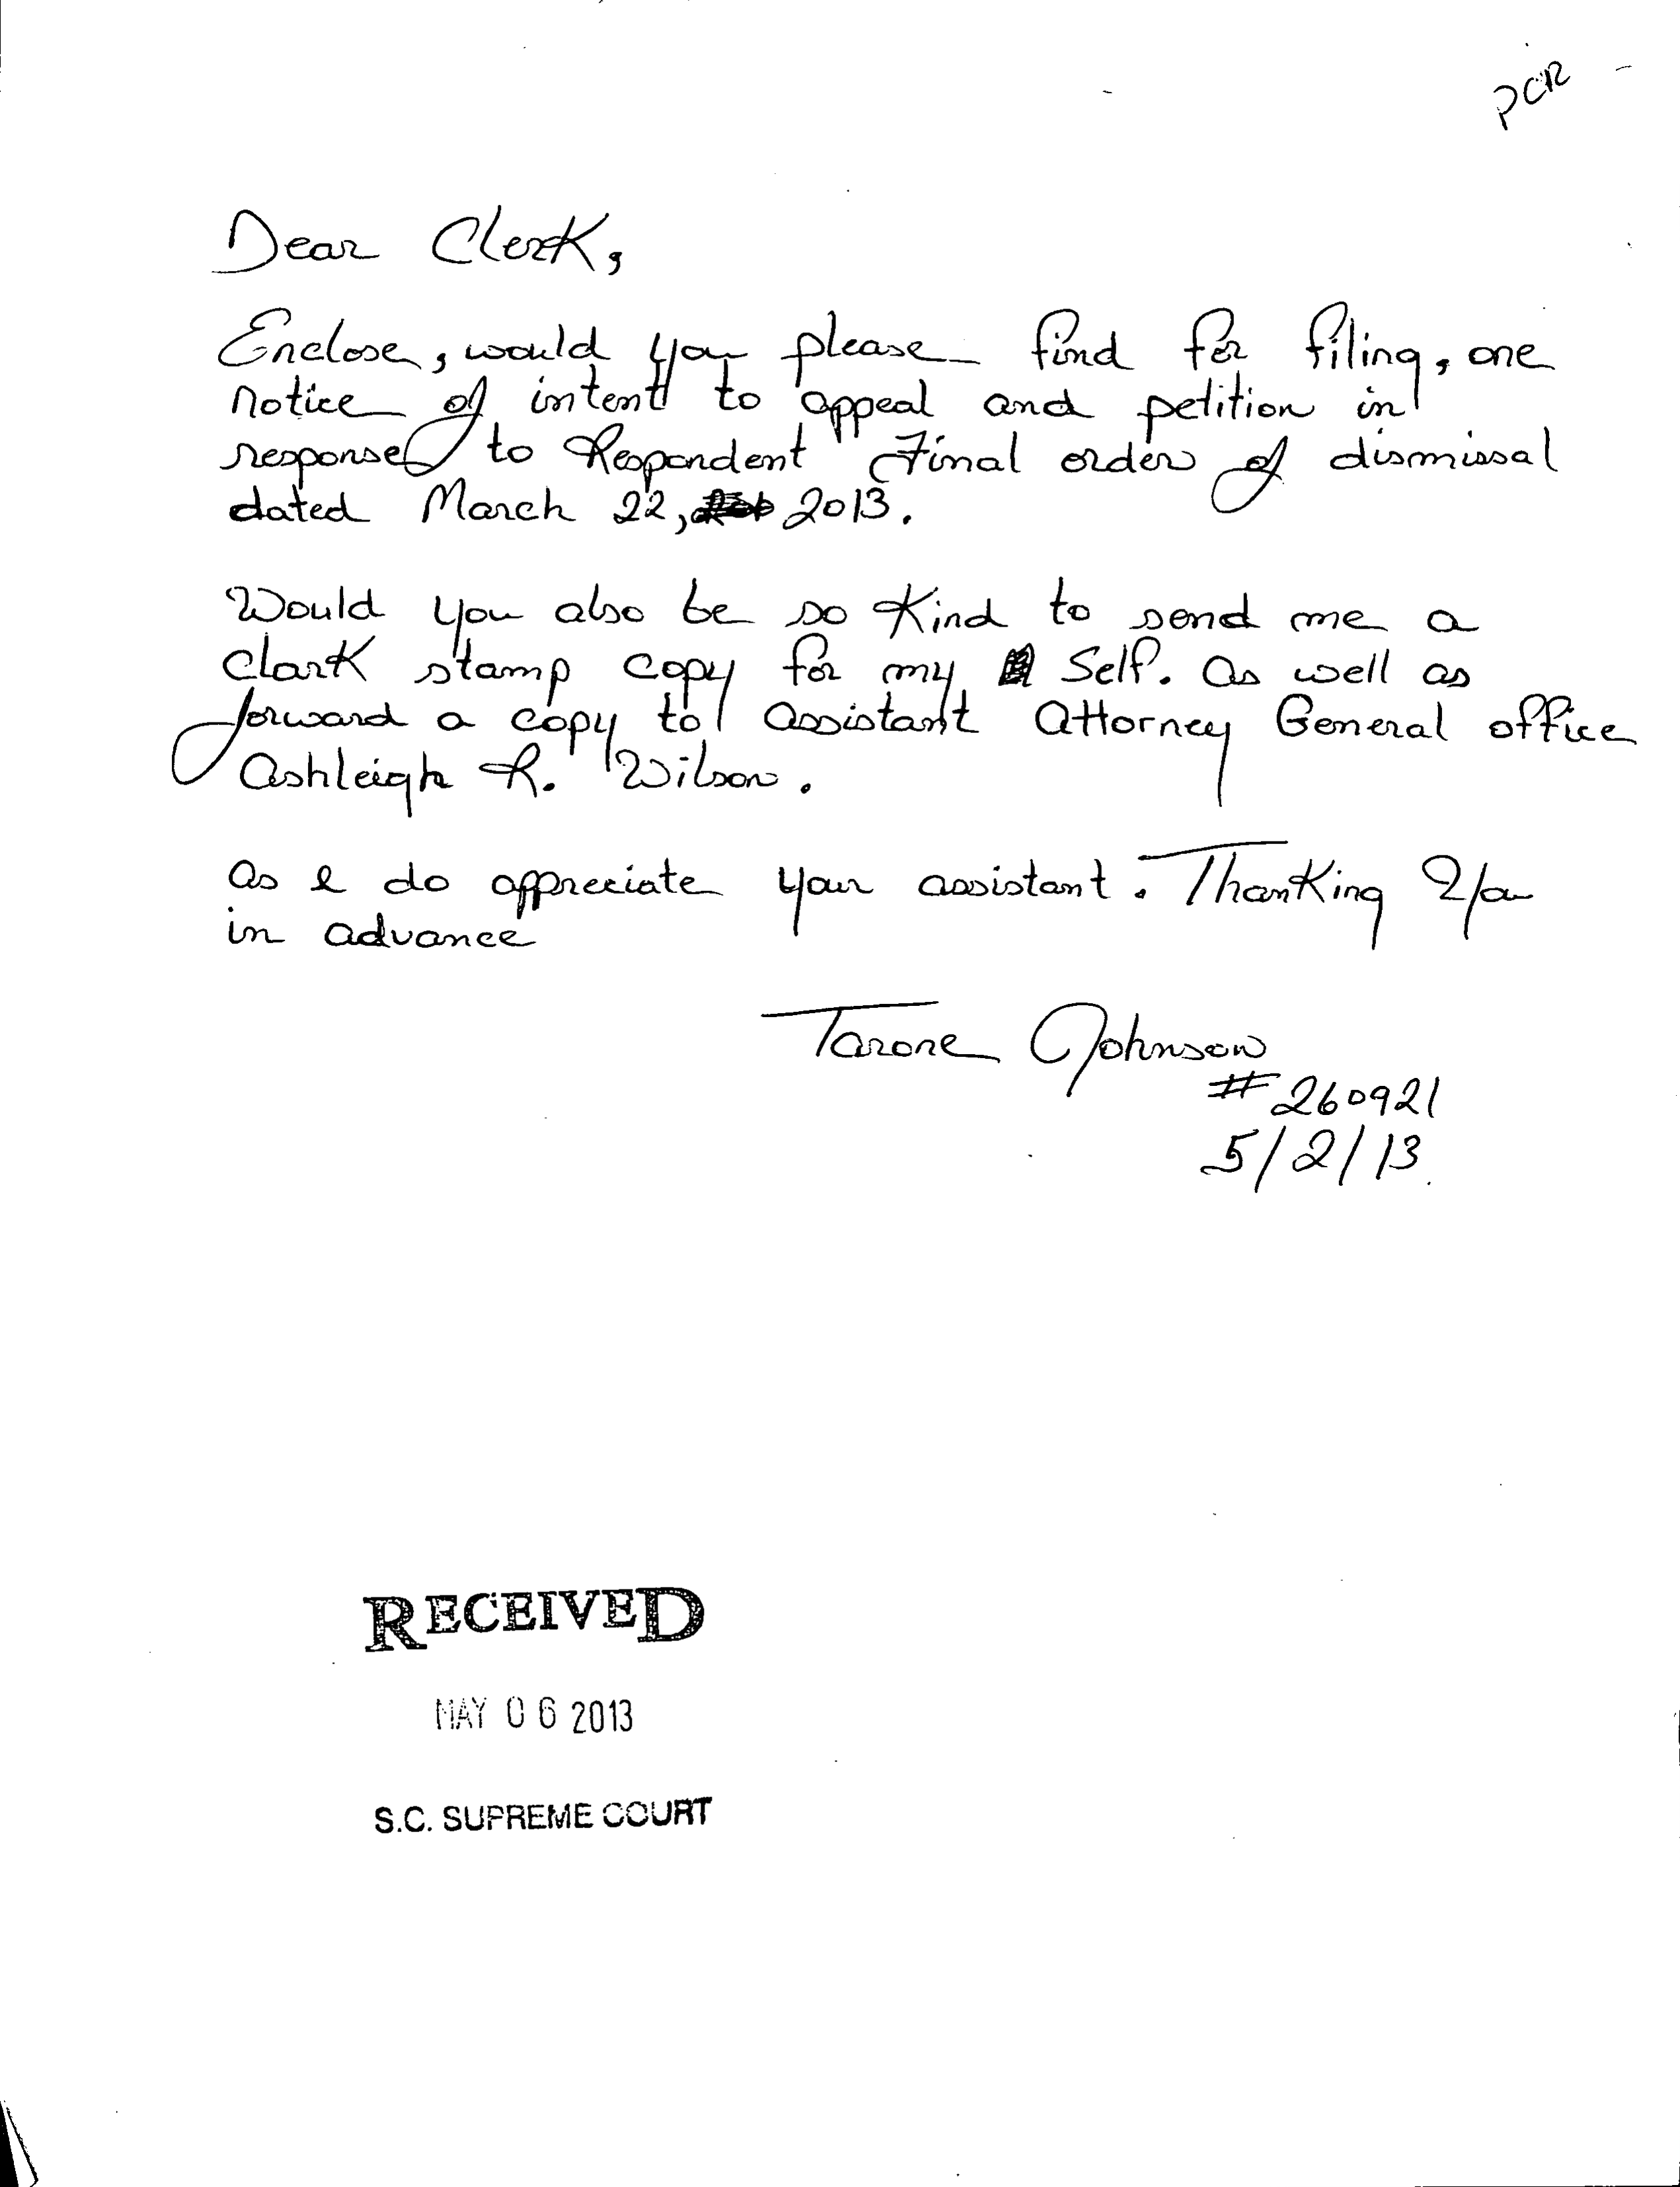 PCR
Dear Clerk,
Enclose, would you please find for filing, one
notice of intent to appeal and petition in
response to Respondent Final order of dismissal
dated March 22, 2013.
Would you also be so Kind to send me a
Clark stamp copy for my Self. As well as
forward a copy to Assistant Attorney General office
Ashleigh R. Wilson.
As I do appreciate your assistant. Thanking You
in advance
Tarone Johnson
# 260921
5/2/13
RECEIVED
MAY 06 2013
S.C. SUPREME COURT